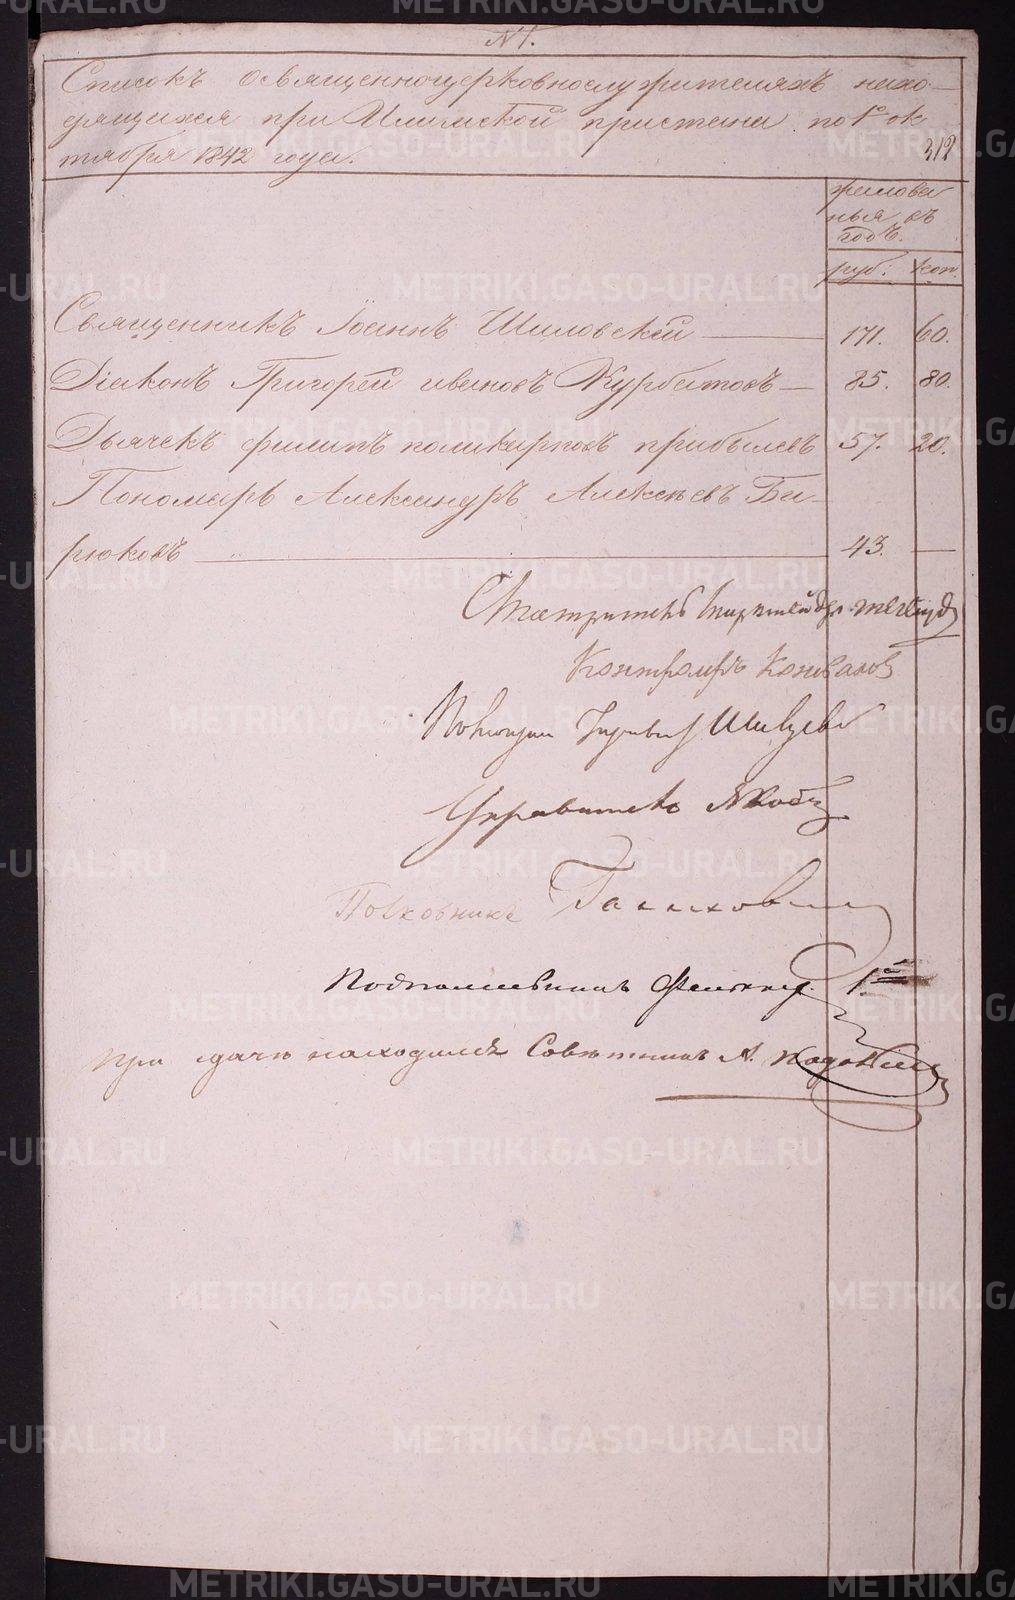 № 1.
Списокъ освященноцерковнослужителяхъ нахо-
дящихся при Илимской пристани по 1е ок
тября 1842 года.
312
жалова
нья въ
годъ.
руб. коп.
Священникъ Іоаннъ Шиловскій 171. 60.
Діаконъ Григорей ивановъ Курбатовъ 85. 80.
Дьячекъ филипъ поликарповъ прибылевъ 57. 20.
Пономарь Александръ Алексѣевъ Би-
рюковъ 43. —
Смотритель
Контролеръ Коновалов
Управитель
Полковникъ
Подполковникъ 1й
При сдачѣ находился Совѣтникъ А.
METRIKI.GASO-URAL.RU